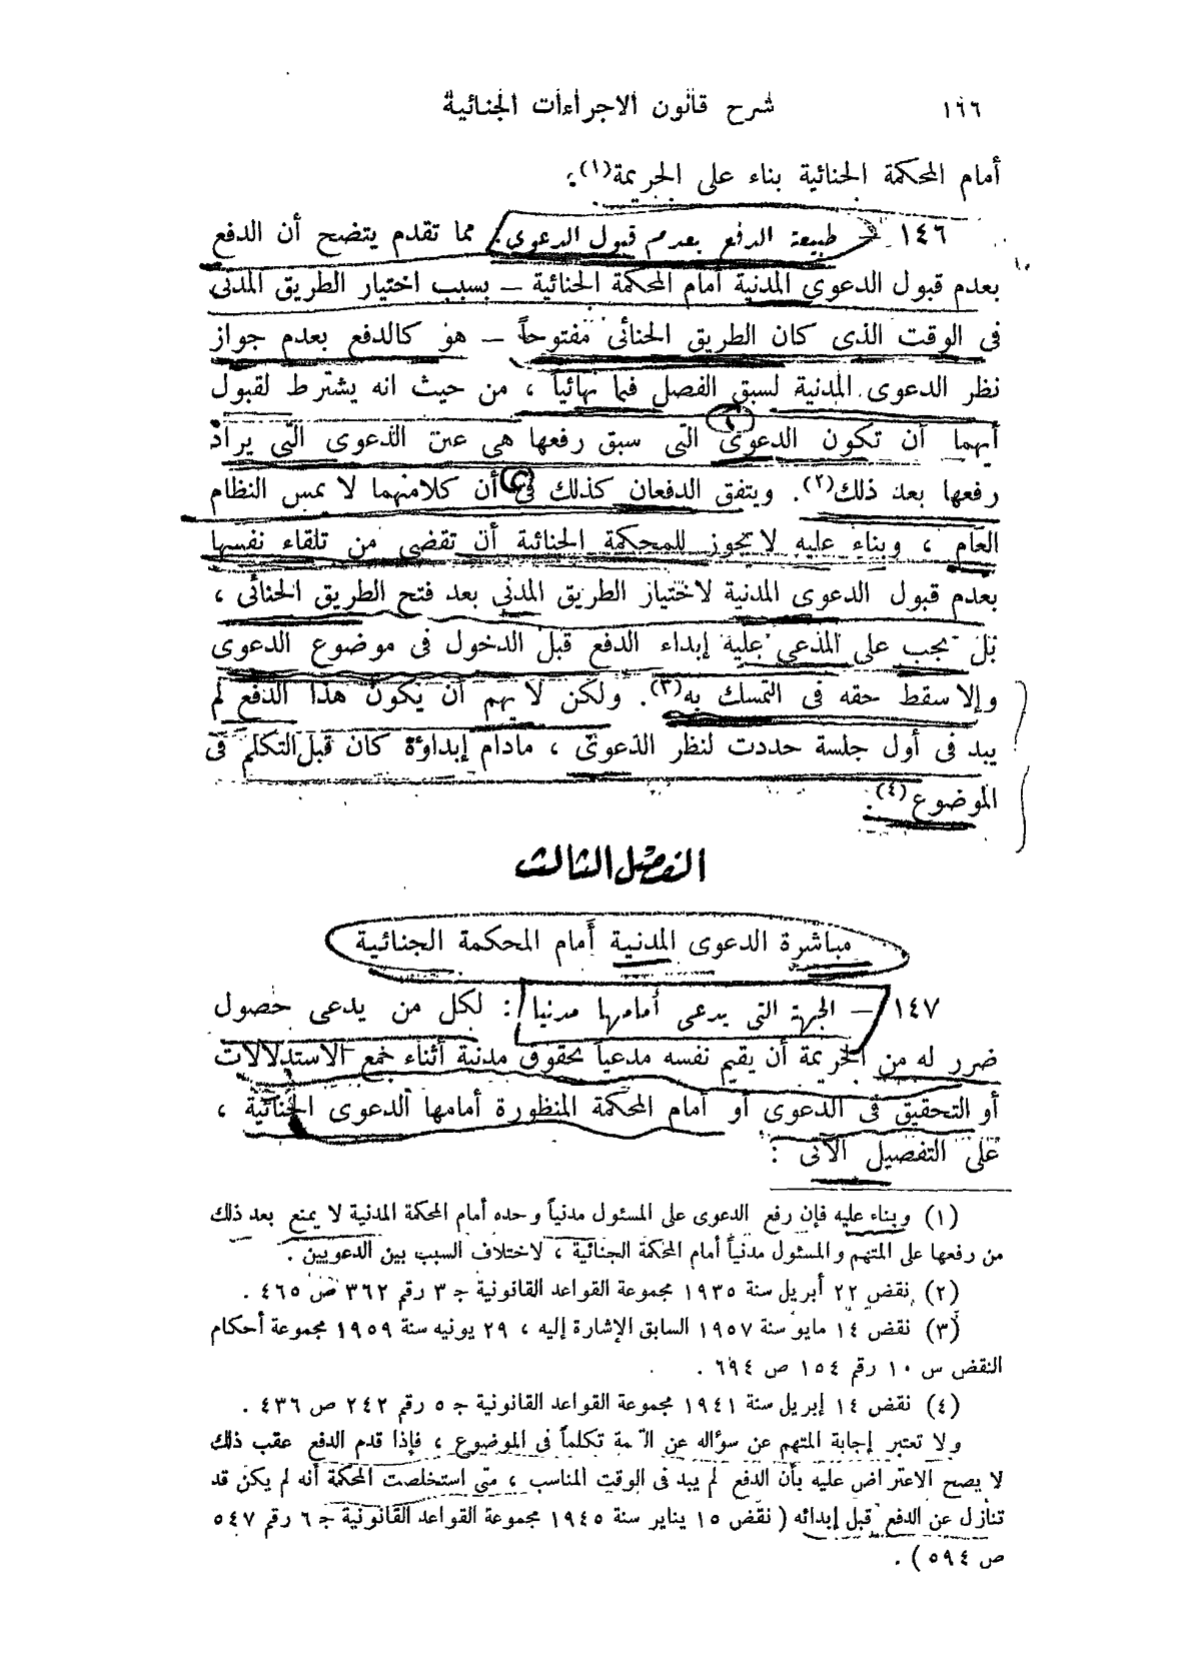 ١٦٦ شرح قانون الاجراءات الجنائية
أمام المحكمة الجنائية بناء على الجريمة(١).
١٤٦ – طبيعة الدفع بعدم قبول الدعوى: مما تقدم يتضح أن الدفع
بعدم قبول الدعوى المدنية أمام المحكمة الجنائية – بسبب اختيار الطريق المدنى
فى الوقت الذى كان الطريق الجنائى مفتوحاً – هو كالدفع بعدم جواز
نظر الدعوى المدنية لسبق الفصل فيها نهائياً ، من حيث انه يشترط لقبول
أيهما أن تكون الدعوى التى سبق رفعها هى عين الدعوى التى يراد
رفعها بعد ذلك(٢). ويتفق الدفعان كذلك فى أن كلامنهما لا يمس النظام
العام ، وبناء عليه لا يجوز للمحكمة الجنائية أن تقضى من تلقاء نفسها
بعدم قبول الدعوى المدنية لاختيار الطريق المدنى بعد فتح الطريق الجنائى ،
بل يجب على المدعى عليه إبداء الدفع قبل الدخول فى موضوع الدعوى
وإلا سقط حقه فى التمسك به(٣). ولكن لا يهم أن يكون هذا الدفع لم
يبد فى أول جلسة حددت لنظر الدعوى ، مادام إبداؤه كان قبل التكلم فى
الموضوع(٤).
الفصل الثالث
مباشرة الدعوى المدنية أمام المحكمة الجنائية
١٤٧ – الجهة التى يدعى أمامها مدنيا : لكل من يدعى حصول
ضرر له من الجريمة أن يقيم نفسه مدعياً بحقوق مدنية أثناء جمع الاستدلالات
أو التحقيق فى الدعوى أو أمام المحكمة المنظورة أمامها الدعوى الجنائية ،
على التفصيل الآتى :
(١) وبناء عليه فإن رفع الدعوى على المسئول مدنياً وحده أمام المحكمة المدنية لا يمنع بعد ذلك
من رفعها على المتهم والمسئول مدنياً أمام المحكمة الجنائية ، لاختلاف السبب بين الدعويين .
(٢) نقض ٢٢ أبريل سنة ١٩٣٥ مجموعة القواعد القانونية ج ٣ رقم ٣٦٢ ص ٤٦٥ .
(٣) نقض ١٤ مايو سنة ١٩٥٧ السابق الإشارة إليه ، ٢٩ يونيه سنة ١٩٥٩ مجموعة أحكام
النقض س ١٠ رقم ١٥٤ ص ٦٩٤ .
(٤) نقض ١٤ إبريل سنة ١٩٤١ مجموعة القواعد القانونية ج ٥ رقم ٢٤٢ ص ٤٣٦ .
ولا تعتبر إجابة المتهم عن سؤاله عن تكلماً فى الموضوع ، فإذا قدم الدفع عقب ذلك
لا يصح الاعتراض عليه بأن الدفع لم يبد فى الوقت المناسب ، متى استخلصت المحكمة أنه لم يكن قد
تنازل عن الدفع قبل إبدائه ( نقض ١٥ يناير سنة ١٩٤٥ مجموعة القواعد القانونية ج ٦ رقم ٥٤٧
ص ٥٩٤ ) .